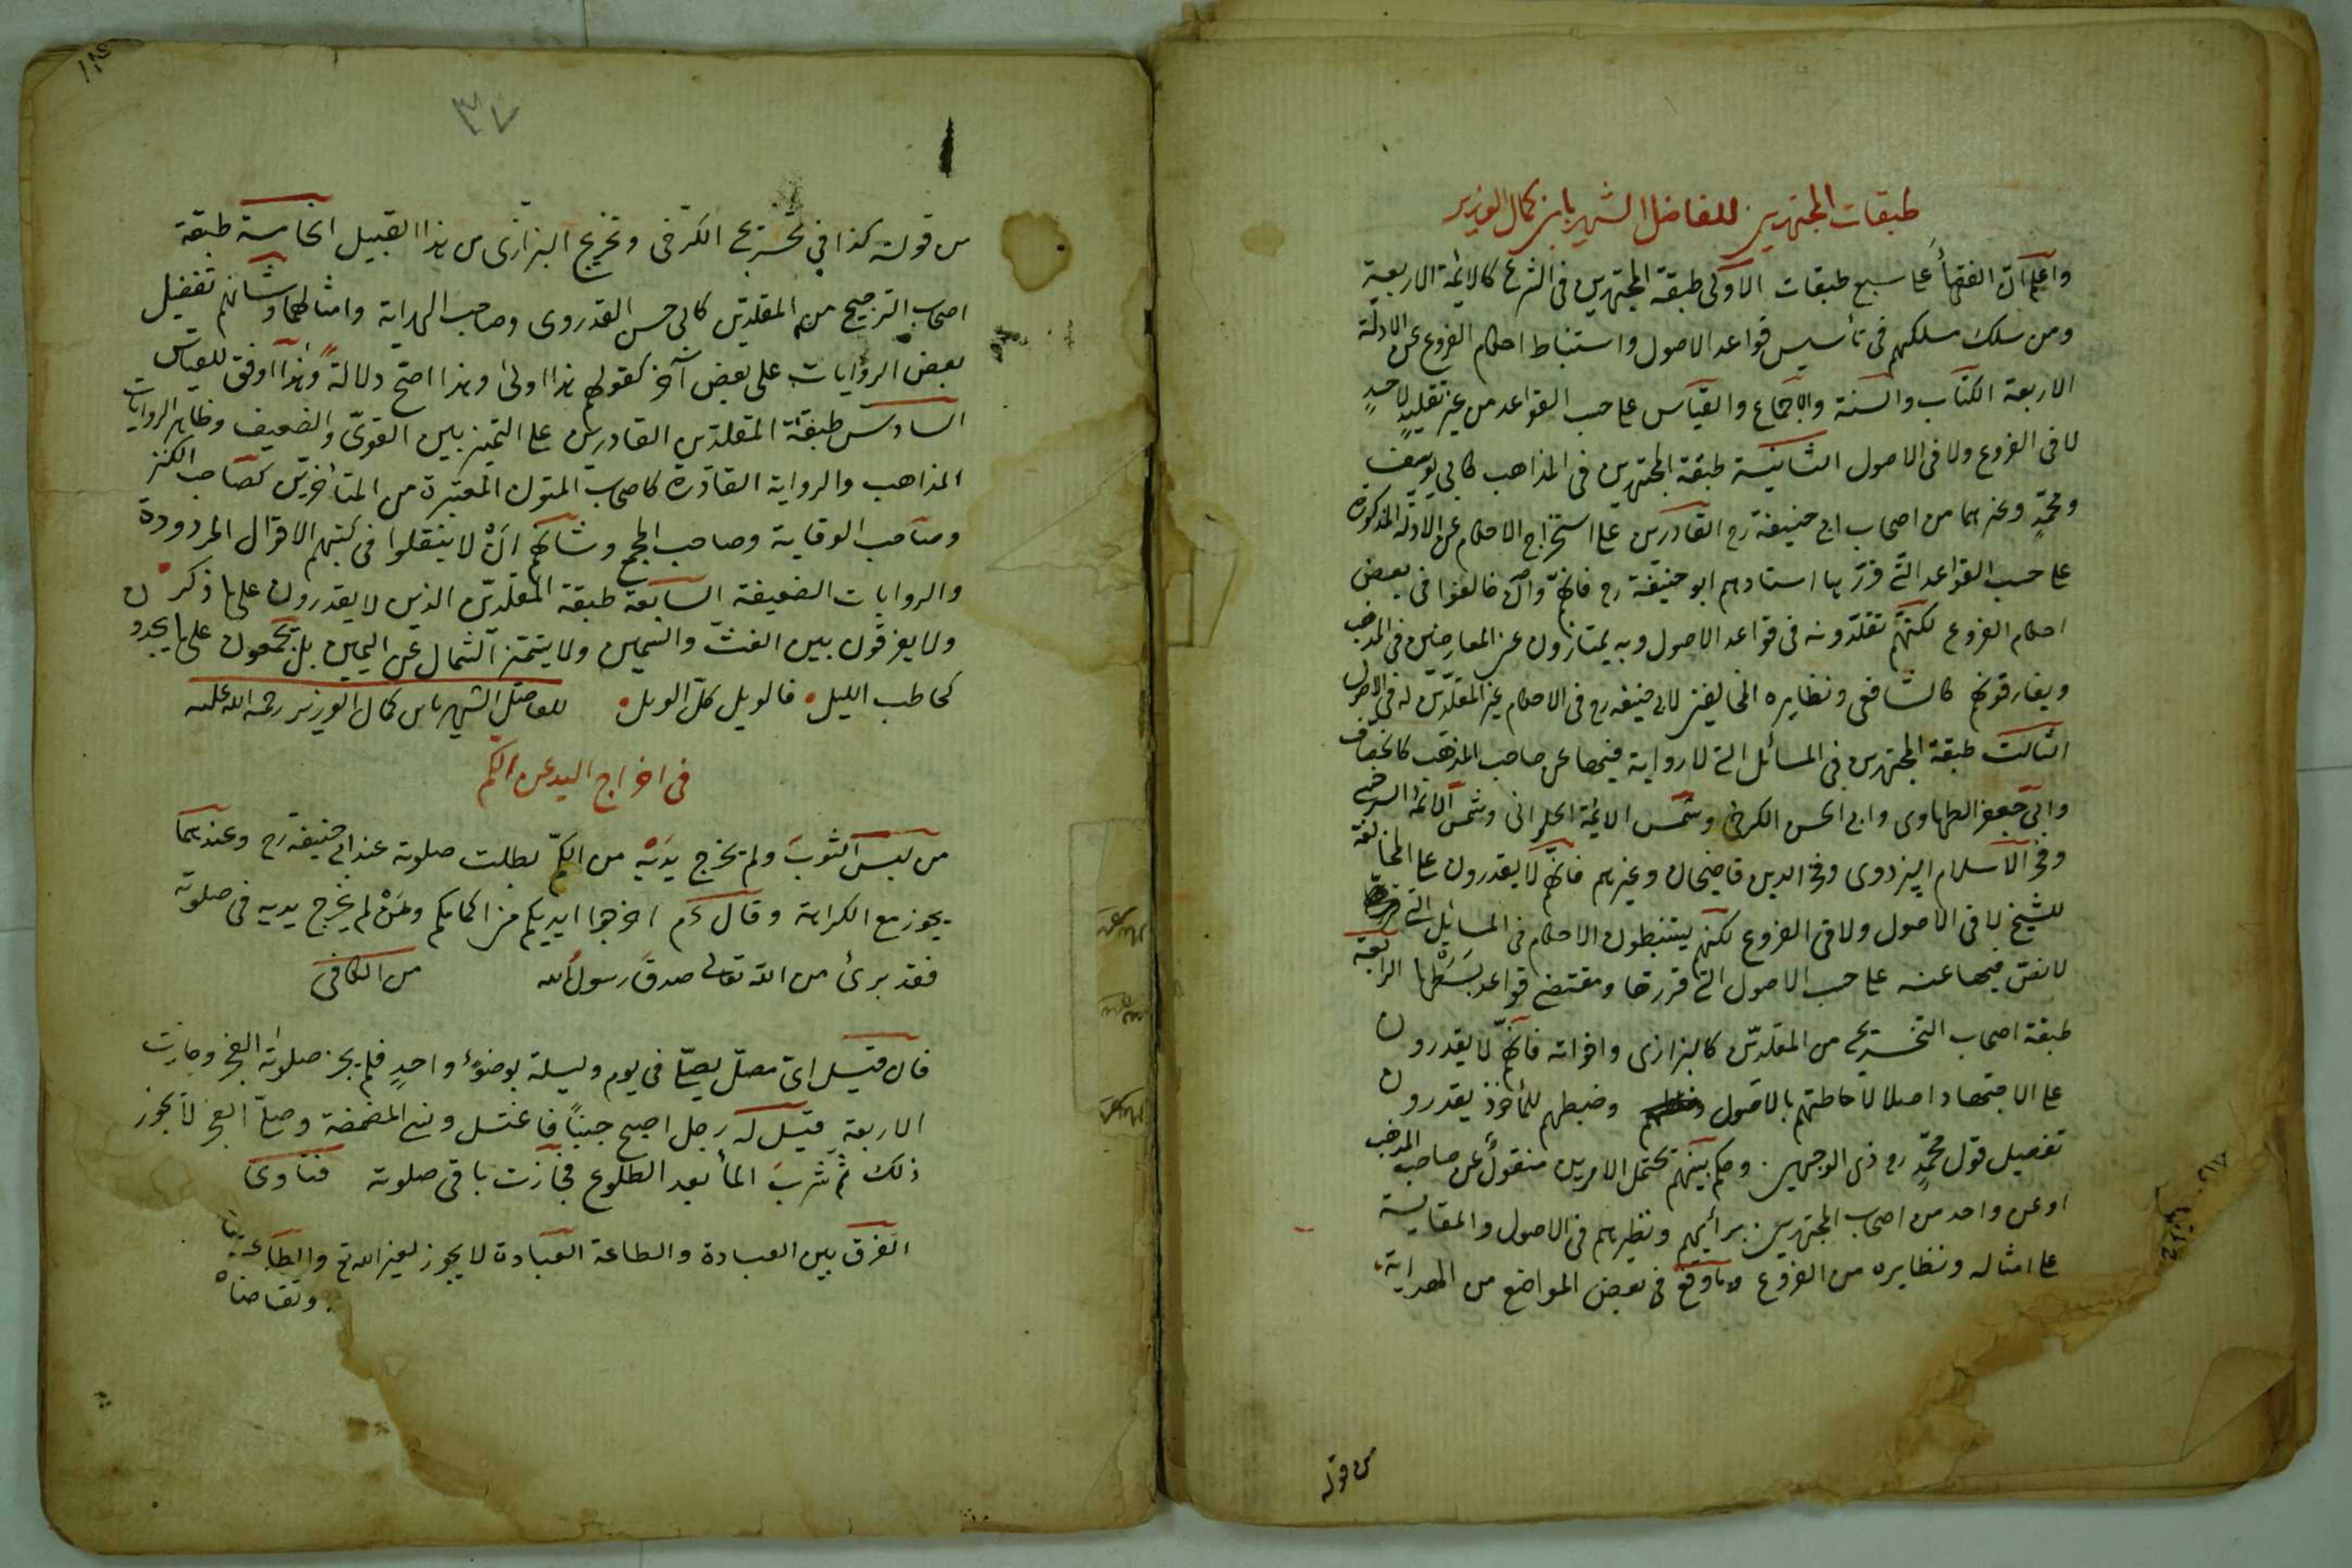 طبقات المجتهدين للفاضل الشهير بابن كمال الوزير
واعلم ان الفقهاء على سبع طبقات الاولى طبقة المجتهدين فى الشرع كالائمة الاربعة
ومن سلك مسلكهم فى تأسيس قواعد الاصول واستنباط احكام الفروع عن الادلة
الاربعة الكتاب والسنة والاجماع والقياس على حسب القواعد من غير تقليد لاحد
لا فى الفروع ولا فى الاصول الثانية طبقة المجتهدين فى المذاهب كابى يوسف
ومحمد وغيرهما من اصحاب ابى حنيفة رح القادرين على استخراج الاحكام عن الادلة المذكورة
على حسب القواعد التى قررها استادهم ابو حنيفة رح فانهم وان خالفوا فى بعض
احكام الفروع لكنهم تقلدونه فى قواعد الاصول وبه يمتازون عن المعارضين فى المذهب
ويفارقونهم كالشافعى ونظايره المخالفين لابى حنيفه رح فى الاحكام غير المقلدين له فى الاصول
الثالث طبقة المجتهدين فى المسائل التى لا رواية فيها عن صاحب المذهب كالخصاف
وابى جعفر الطهاوى وابى الحسن الكرخى وشمس الائمة الحلوانى وشمس الائمة السرخسى
وفخر الاسلام البزدوى وفخر الدين قاضيخان وغيرهم فانهم لا يقدرون على المخالفة
للشيخ لا فى الاصول ولا فى الفروع لكنهم يستنبطون الاحكام فى المسايل التى
لا نص فيها عنه على حسب الاصول التى قررها ومقتضى قواعد بسطها الرابعة
طبقة اصحاب التخريج من المقلدين كالبزازى واخواته فانهم لا يقدرون
على الاجتهاد اصلا لاحاطتهم بالاصول وضبطهم للمأخوذ يقدرون
تفصيل قول محمد رح ذى الوجهين وحكم بينهم تحتمل الامرين منقول عن صاحب المذهب
او عن واحد من اصحاب المجتهدين برأيهم ونظرهم فى الاصول والمقايسة
على امثاله ونظايره من الفروع وما وقع فى بعض المواضع من الهداية
من قوله
٣٧
من قوله كذا فى تخريج الكرخى وتخريج البزازى من هذا القبيل الخامسة طبقة
اصحاب الترجيح من المقلدين كابى حسن القدروى وصاحب الهداية وامثالهما وشانهم تفضيل
بعض الروايات على بعض آخر كقولهم هذا اولى وهذا اصح دلالة وهذا اوفق للقياس
السادس طبقة المقلدين القادرين على التميز بين القوى والضعيف وظاهر الروايات
المذاهب والرواية القادرة كاصحاب المتون المعتبرة من المتأخرين كصاحب الكنز
وصاحب الوقاية وصاحب المجمع وشانهم ان لا ينقلوا فى كتبهم الاقوال المردودة
والروايات الضعيفة السابعة طبقة المقلدين الذين لا يقدرون على ما ذكر
ولا يفرقون بين الغث والسمين ولا يتميز الشمال عن اليمين بل يجمعون على ما يجدون
كحاطب الليل فالويل كل الويل للفاضل الشهير بابن كمال الوزير رحمة الله عليه
فى اخراج اليد عن الكم
من لبس الثوب ولم يخرج يديه من الكم بطلت صلوته عند ابى حنيفة رح وعندهما
يجوز مع الكراهة وقال عم اخرجوا ايديكم من اكمامكم ومن لم يخرج يديه فى صلوته
فقد برئ من الله تعالى صدق رسول الله من الكافى
فان قيل اى مصل يصلى فى يوم وليلة بوضوء واحد فلم يجز صلوته الفجر وجازت
الاربعة قيل له رجل اصبح جنبا فاغتسل ونسى المضمضة وصلى الفجر لا يجوز
ذلك ثم شرب الماء بعد الطلوع فجازت باقى صلوته فتاوى
الفرق بين العبادة والطاعة العبادة لا يجوز لغير الله تع والطاعة